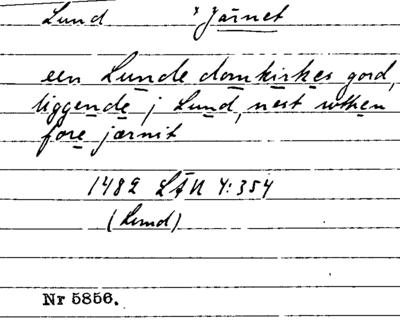 Lund × Järnet
een Lunde domkirkes gord,
liggende j Lund, nest wthen
fore jærnit
1482 LÄU 4:354
(Lund)
Nr 5856.